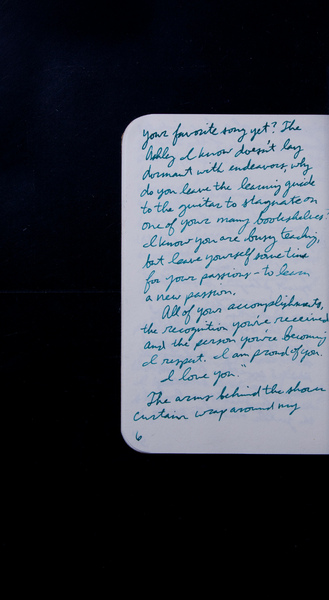 your favorite song yet? The
Ashley I know doesn't lay
dormant with endeavors, why
do you leave the learning guide
to the guitar to stagnate on
one of your many bookshelves?
I know you are busy teaching,
but leave yourself some time
for your passions - to learn
a new passion.
All of your accomplishments,
the recognition you've received
and the person you're becoming
I respect. I am proud of you.
I love you."
The arms behind the shower
curtain wrap around my
6